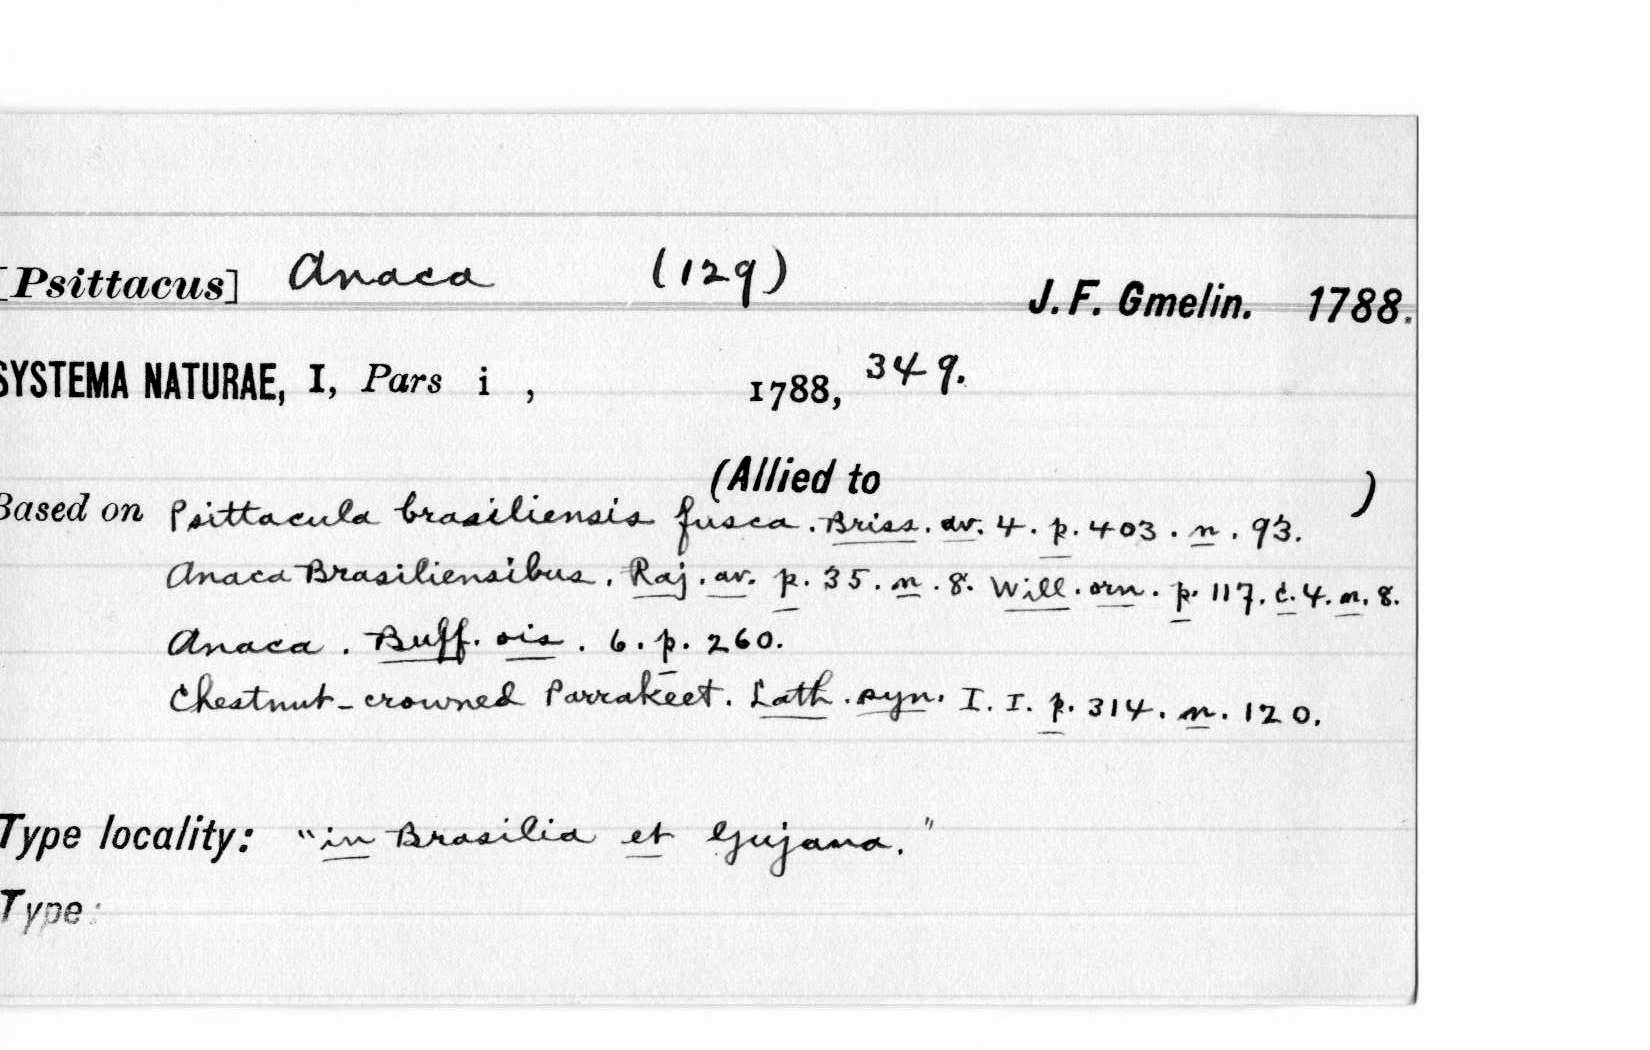 [Psittacus] Anaca (129) J. F. Gmelin. 1788.
SYSTEMA NATURAE, I, Pars i , 1788, 349.
(Allied to )
Based on Psittacula brasiliensis fusca. Briss. av. 4. p. 403. n. 93.
Anaca Brasiliensibus. Raj. av. p. 35. n. 8. Will. orn. p. 117. t. 4. n. 8.
Anaca. Buff. ois. 6. p. 260.
Chestnut-crowned Parrakeet. Lath. syn. I. I. p. 314. n. 120.
Type locality: "in Brasilia et Gujana."
Type: